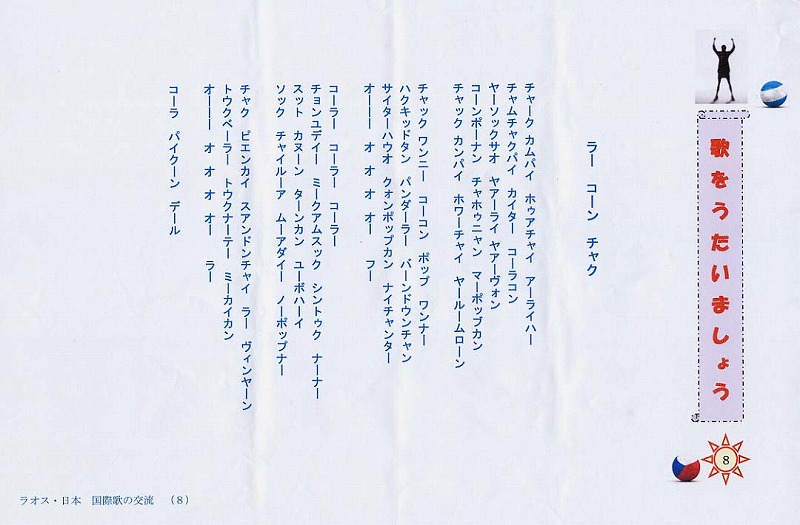 歌をうたいましょう
8
ラー コーン チャク
チャーク カムパイ ホゥアチャイ アーライハー
チャムチャクパイ カイター コーラコン
ヤーソックサオ ヤアーライ ヤアーヴォン
コーンポーナン チャホゥニャン マーポップカン
チャック カンパイ ホワーチャイ ヤールームローン
チャック ワンニー コーコン ポップ ワンナー
ハクキッドタン パンダーラー バーンドウンチャン
サイターハウオ クォンポップカン ナイチャンター
オーーー オ オ オ オー フー
コーラー コーラー コーラー
チョンユデイー ミークアムスック シントゥク ナーナー
スット カヌーン ターンカン ユーボハーイ
ソック チャイルーア ムーアダイー ノーポップナー
チャク ピエンカイ スアンドンチャイ ラー ヴィンヤーン
トウクペーラー トウクナーテー ミーカイカン
オーーー オ オ オ オー ラー
コーラ パイクーン デール
ラオス・日本 国際歌の交流 (8)